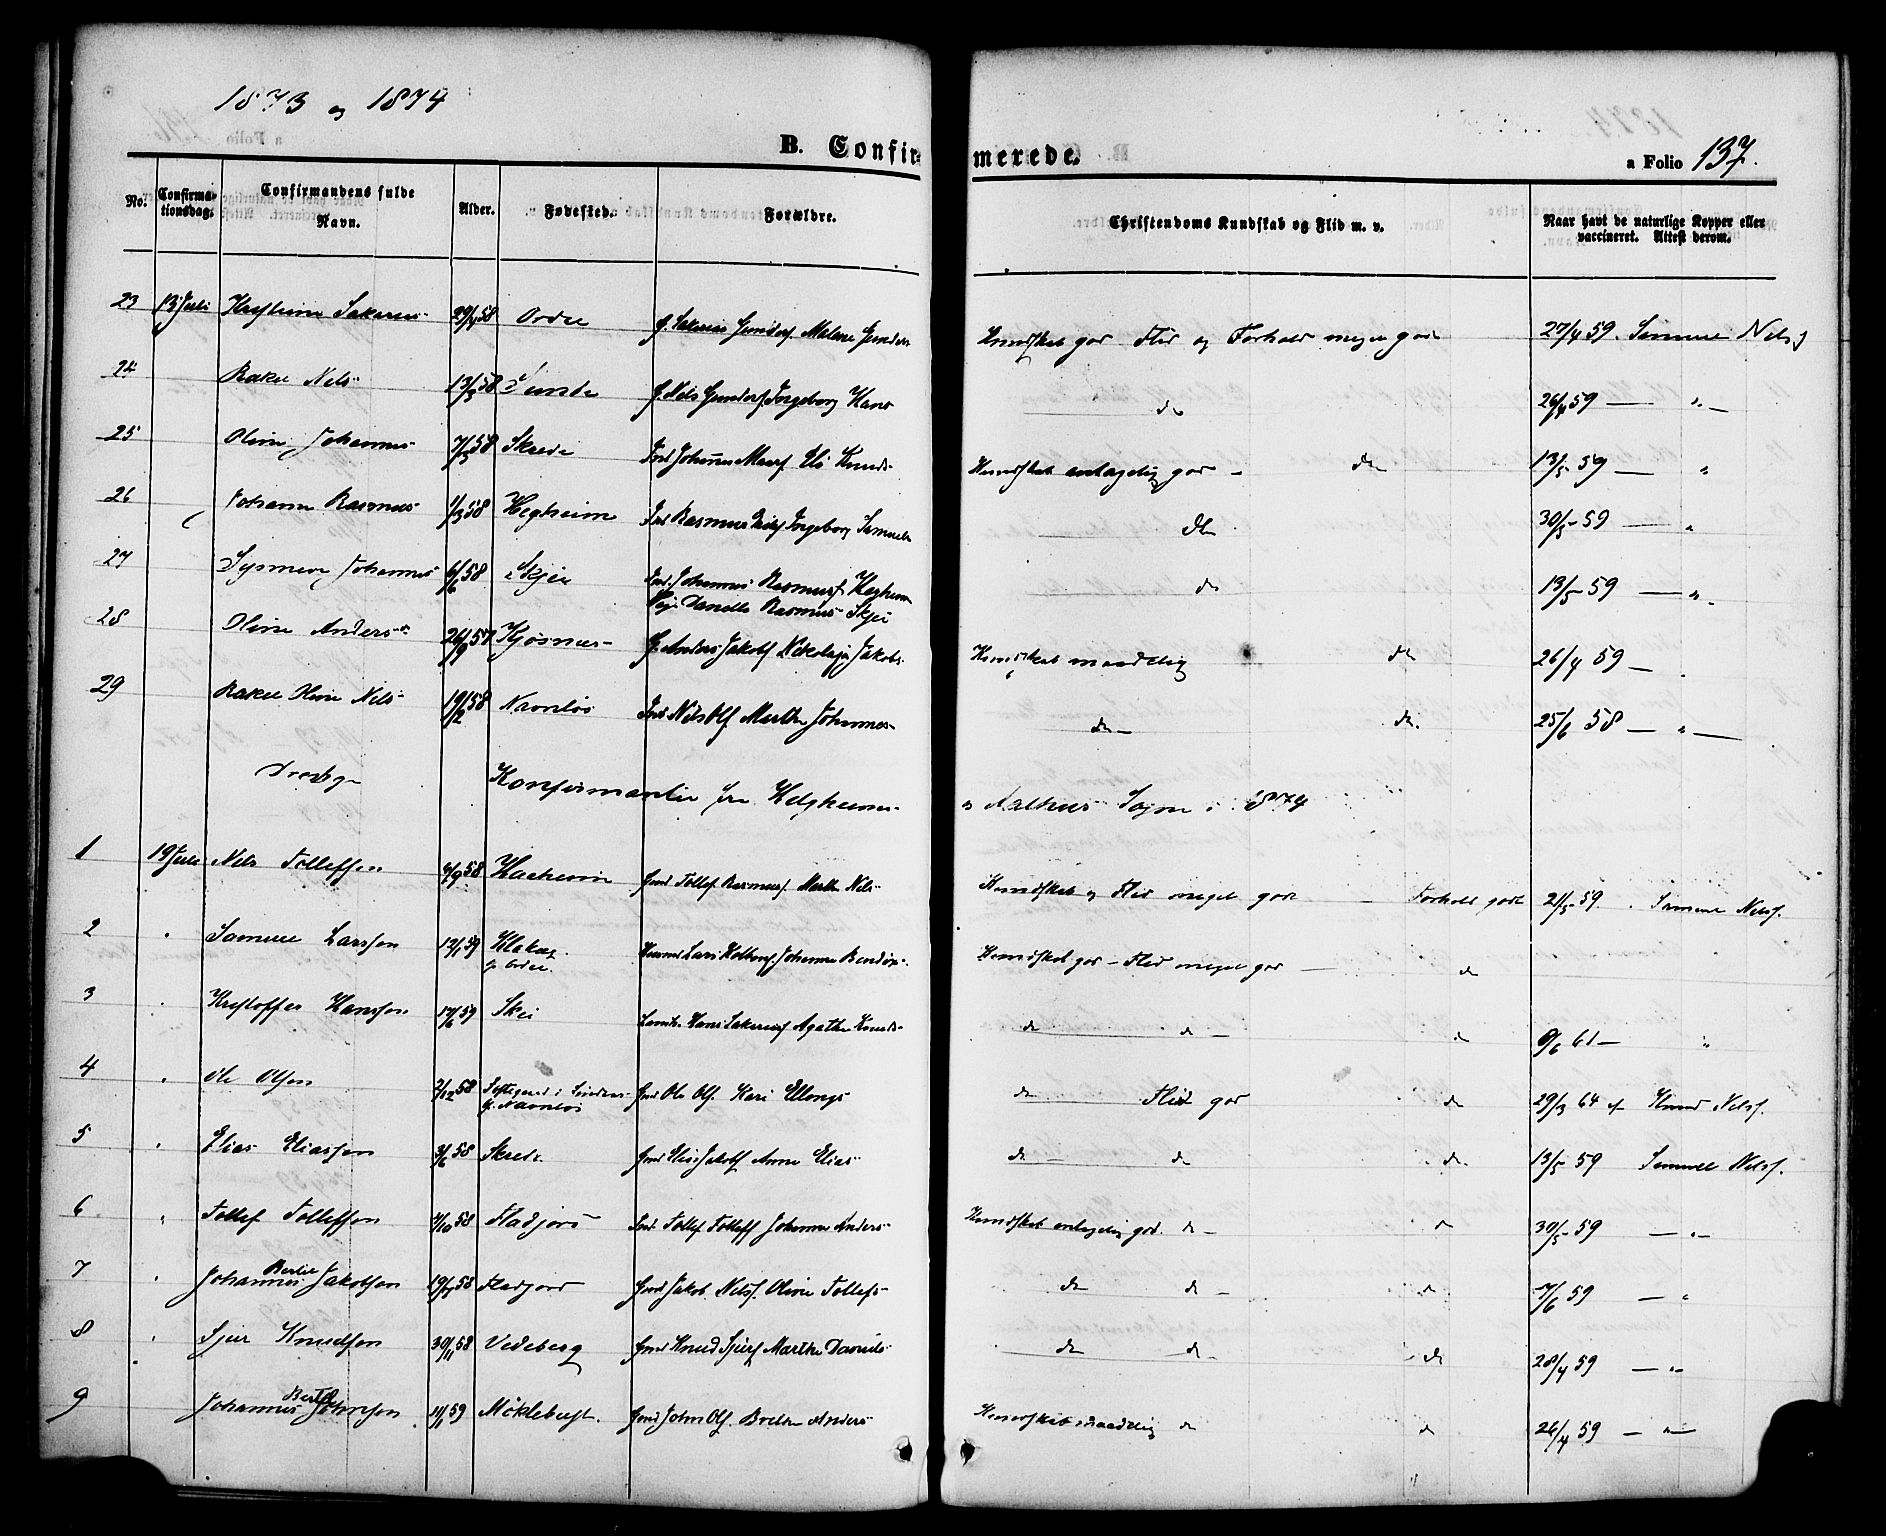 1873 og 1874
B. Confirmerede. a Folio 137.
No. Confirmationsdag. Confirmandens fulde Navn. Alder. Fødested. Forældre. Christendoms Kundskab og Flid m. v. Naar havt de naturlige Kopper eller vaccineret. Attest derom.
23 13 Juli 29/4 58 Ordre Kundskab god Flid og Forhold meget god 27/4 59. Samuel Nelsf
24 Rakel Nels- 13/3 58 G. Nels Ingeborg Hans do 26/4 59 — " —
25 Oline Johannes- 7/3 58 Skrede Ind. Johannes Els Knuds- Kundskab antagelig god - do 13/5 59 — "
26 Johanne Rasmus- 1/3 58 Hegheim Ind. Rasmus Ingeborg Samuels do 30/5 59 — "
27 Synneve Johannes- 6/6 58 Skjei Ind. Johannes Rasmusf. Hegheim do 13/5 59 — " -
Pige Danelle Rasmus- Skjei
28 Oline Anders- 26/9 57 Kjøsnes- G. Anders Jakobf Nikolaja Jakobs- Kundskab maadelig do 26/4 59 —
29 Rakel Oline Nels- 19/2 58 Navnløs Ind. Nels Olf Marthe Johannes- do - do. 25/6 58 — " —
Konfirmanter fra Helgheims- og Aalhus Sogne i 1874
1 19 Juli Nels Tollefsen 4/9 58 Gmd Tollef Rasmusf. Marthe Nels- Kundskab og Flid meget god - Forhold godt 21/5 59. Samuel Nelsf.
2 " Samuel Larssen 12/1 59 Klakeg Lars Johanne Bendix- Kundskab god - Flid meget god — do
3 " Kristoffer Hanssen 17/6 59 Skei Hans Sakariasf Agathe Knuds- do do - do 9/6 61 — "
4 " Ole Olsen 2/12 58 Gmd Ole Olf. Kari Ellings- do Flid god do 29/3 64 af Knud Nelsf.
p. Navnløs
5 " Elias Eliassen 3/6 58 Skrede Gmd Elias Jakobf Anne Elias- do - do do. 13/5 59 Samuel Nelsf.
6 " Tollef Tollefsen 4/10 58 Fladjord Ind. Tollef Tolleff Johanne Anders- Kundskab antagelig god. do - do 30/5 59 — " -
7 " Johannes Bertel Jakobsen 19/7 58 Fladjord Gmd Jakob Nelsf. Oline Tollefs- do do - do 7/6 59 — "
8 " Sjur Knudsen 30/11 58 Vedeberg Gmd Knud Sjurf Marthe Daniels- do do - do 28/4 59 — " -
9 Johannes Bertel Johnsen 11/1 59 Møklebust. Gmd John Olf. Brethe Anders- Kundskab maadelig do do 26/4 59 — " —